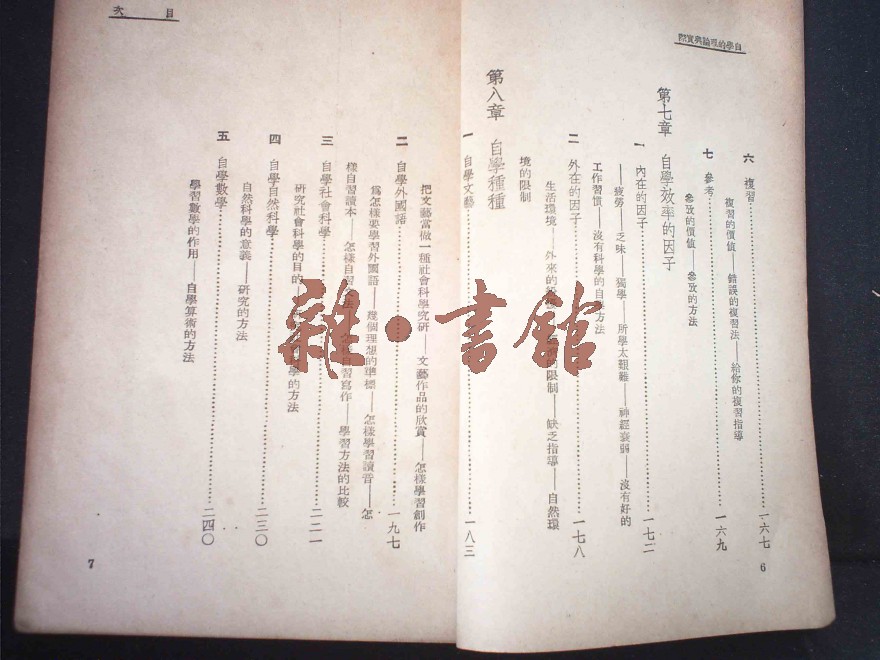 自學的理論與實際
六 複習……一六七
複習的價値——錯誤的複習法——給你的複習指導
七 參考……一六九
參攷的價値——參攷的方法
第七章 自學效率的因子
一 內在的因子……一七二
——疲勞——乏味——獨學——所學太艱難——神經衰弱——沒有好的
工作習慣——沒有科學的自 方法
二 外在的因子……一七八
生活環境——外來的 的限制——缺乏指導——自然環
境的限制
第八章 自學種種
一 自學文藝……一八三
把文藝當做一種社會科學究研——文藝作品的欣賞——怎樣學習創作
二 自學外國語……一九七
爲怎樣要學習外國語——幾個理想的準標——怎樣學習讀音——怎
樣自習讀本——怎樣自習 自習寫作——學習方法的比較
三 自學社會科學……二二一
研究社會科學的目的 學的方法
四 自學自然科學……二三〇
自然科學的意義——研究的方法
五 自學數學……二四〇
學習數學的作用——自學算術的方法
目次
6
7
雜·書館